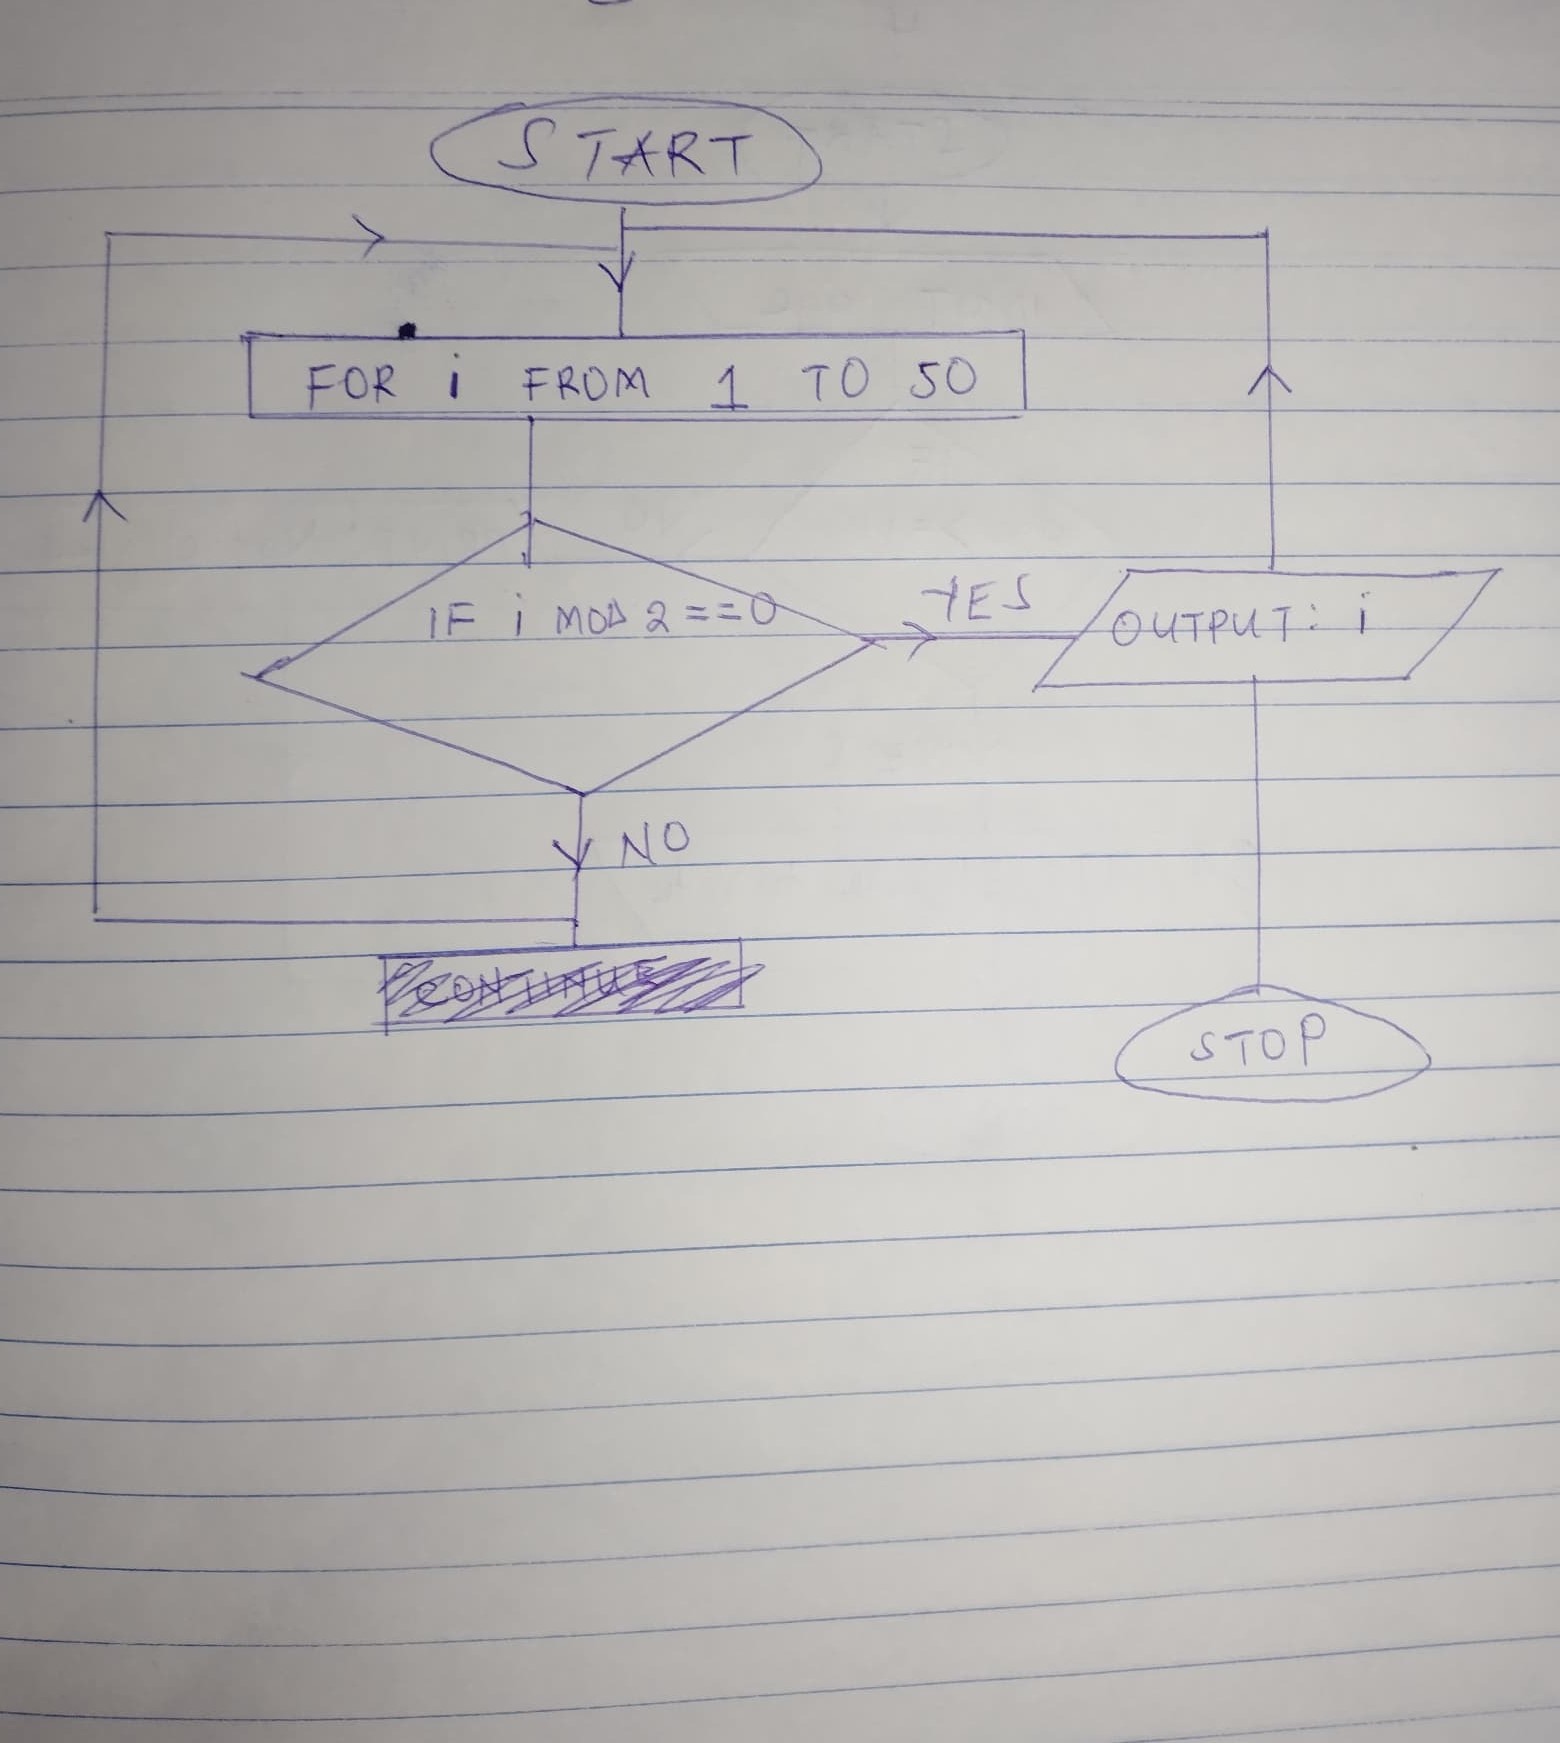 START
FOR i FROM 1 TO 50
IF i MOD 2 == 0
YES
OUTPUT: i
NO
CONTINUE
STOP